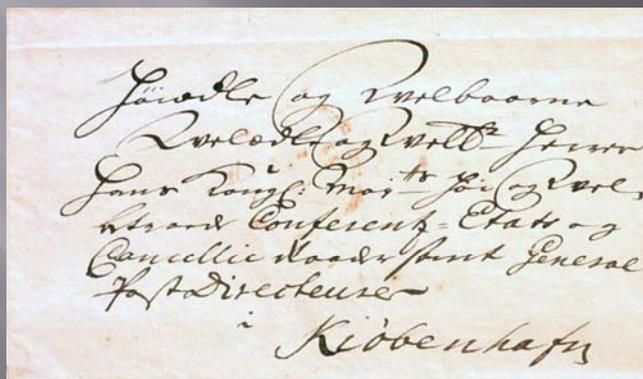 Höiædle og Welbaarne
Welædle og Welb: Herrer
Hans Kongl: May:ts Höi og Wel-
Conferentz-Etats og
Cancellie Raader samt General
Post Directeurer
i
Kiöbenhafn